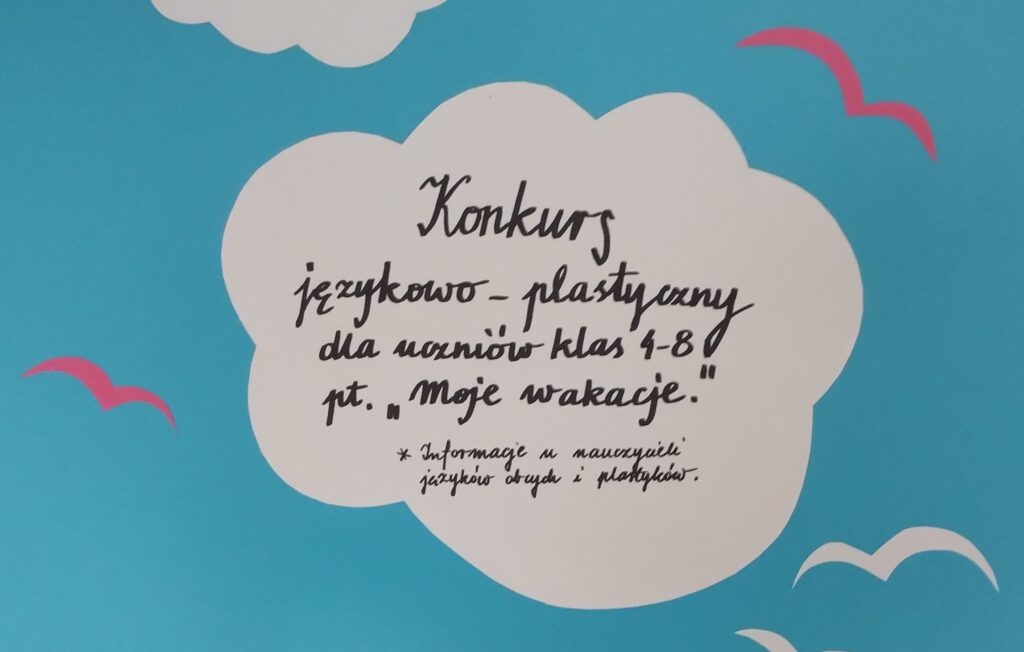 Konkurs
językowo - plastyczny
dla uczniów klas 4-8
pt. „Moje wakacje."
* Informacje u nauczycieli
języków obcych i plastyków.